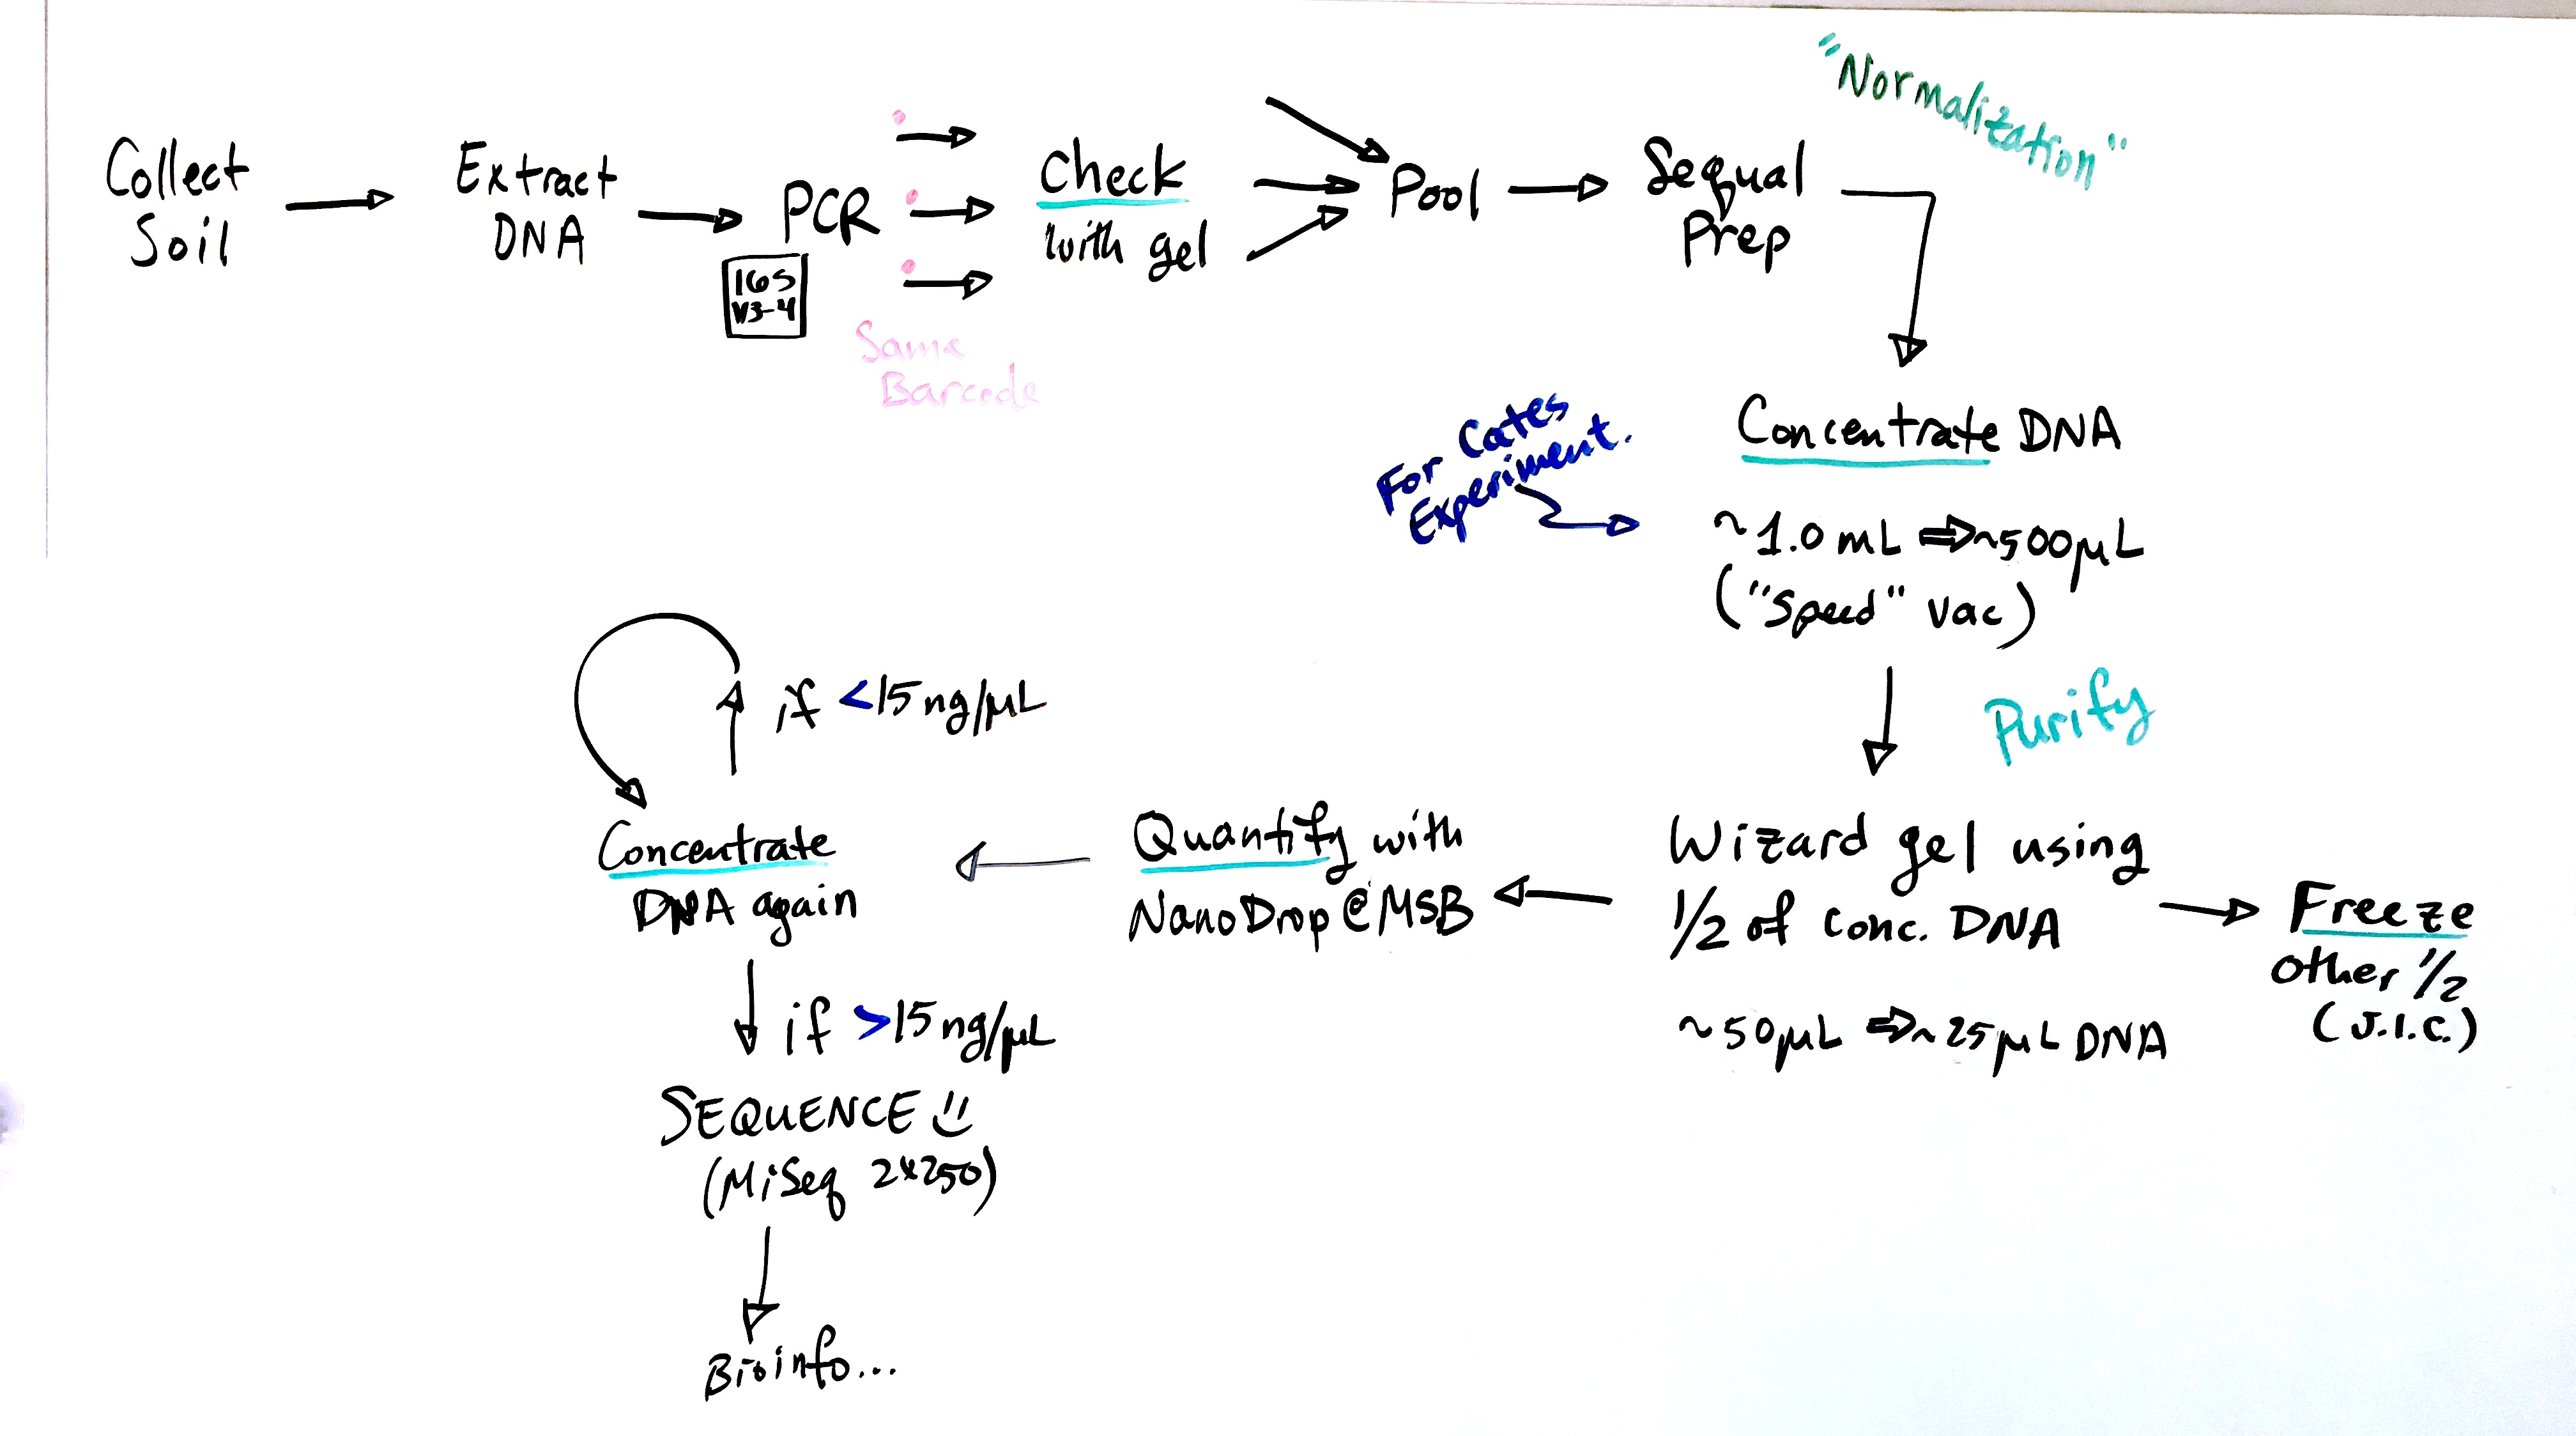 "Normalization"
Collect
Soil
Extract
DNA
PCR
16S
V3-4
Same
Barcode
Check
with gel
Pool
Sequal
Prep
Concentrate DNA
For Cates
Experiment.
~1.0 mL ⇒ ~500μL
("Speed" vac)
Purify
Wizard gel using
1/2 of conc. DNA
~50μL ⇒ ~25μL DNA
Freeze
other 1/2
(J.I.C.)
Quantify with
NanoDrop @ MSB
if <15 ng/μL
Concentrate
DNA again
if >15 ng/μL
SEQUENCE
(MiSeq 2x250)
Bioinfo...